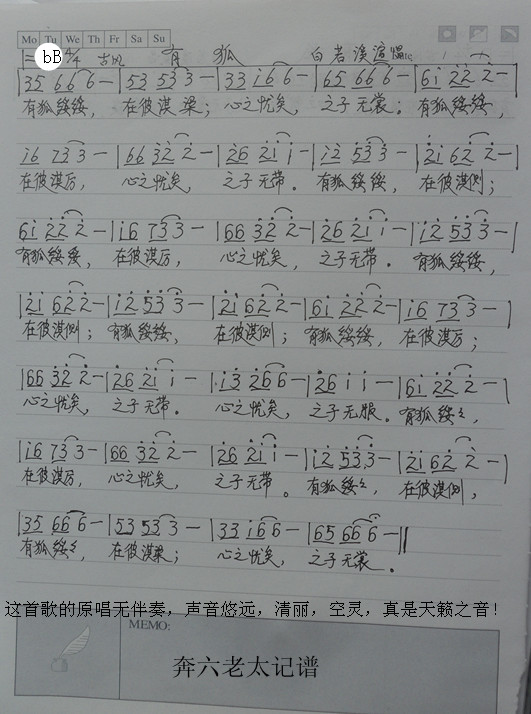 Mo Tu We Th Fr Sa Su
bB 4/4 古风 有狐 白若溪演唱
|35 66 6-|53 53 3-|33 i6 6-|65 66 6-|6i 22 2-|
有狐绥绥, 在彼淇梁; 心之忧矣, 之子无裳。有狐绥绥,
i6 73 3-|66 32 2-|26 2i i-|i2 53 3-|2i 62 2-|
在彼淇厉, 心之忧矣, 之子无带。有狐绥绥, 在彼淇侧;
6i 22 2-|i6 73 3-|66 32 2-|26 2i i-|i2 53 3-|
有狐绥绥, 在彼淇厉, 心之忧矣, 之子无带。有狐绥绥,
|2i 62 2-|i2 53 3-|2i 62 2-|6i 22 2-|i6 73 3-|
在彼淇侧; 有狐绥绥, 在彼淇侧; 有狐绥绥, 在彼淇厉;
|66 32 2-|26 2i i-|i3 26 6-|26 i i-|6i 22 2-|
心之忧矣, 之子无带。心之忧矣, 之子无服。有狐绥々,
|i6 73 3-|66 32 2-|26 2i i-|i2 53 3-|2i 62 2-|
在彼淇厉, 心之忧矣, 之子无带。有狐绥々, 在彼淇侧,
|35 66 6-|53 53 3-|33 i6 6-|65 66 6-||
有狐绥々, 在彼淇梁; 心之忧矣, 之子无裳。
这首歌的原唱无伴奏，声音悠远，清丽，空灵，真是天籁之音！
MEMO:
奔六老太记谱